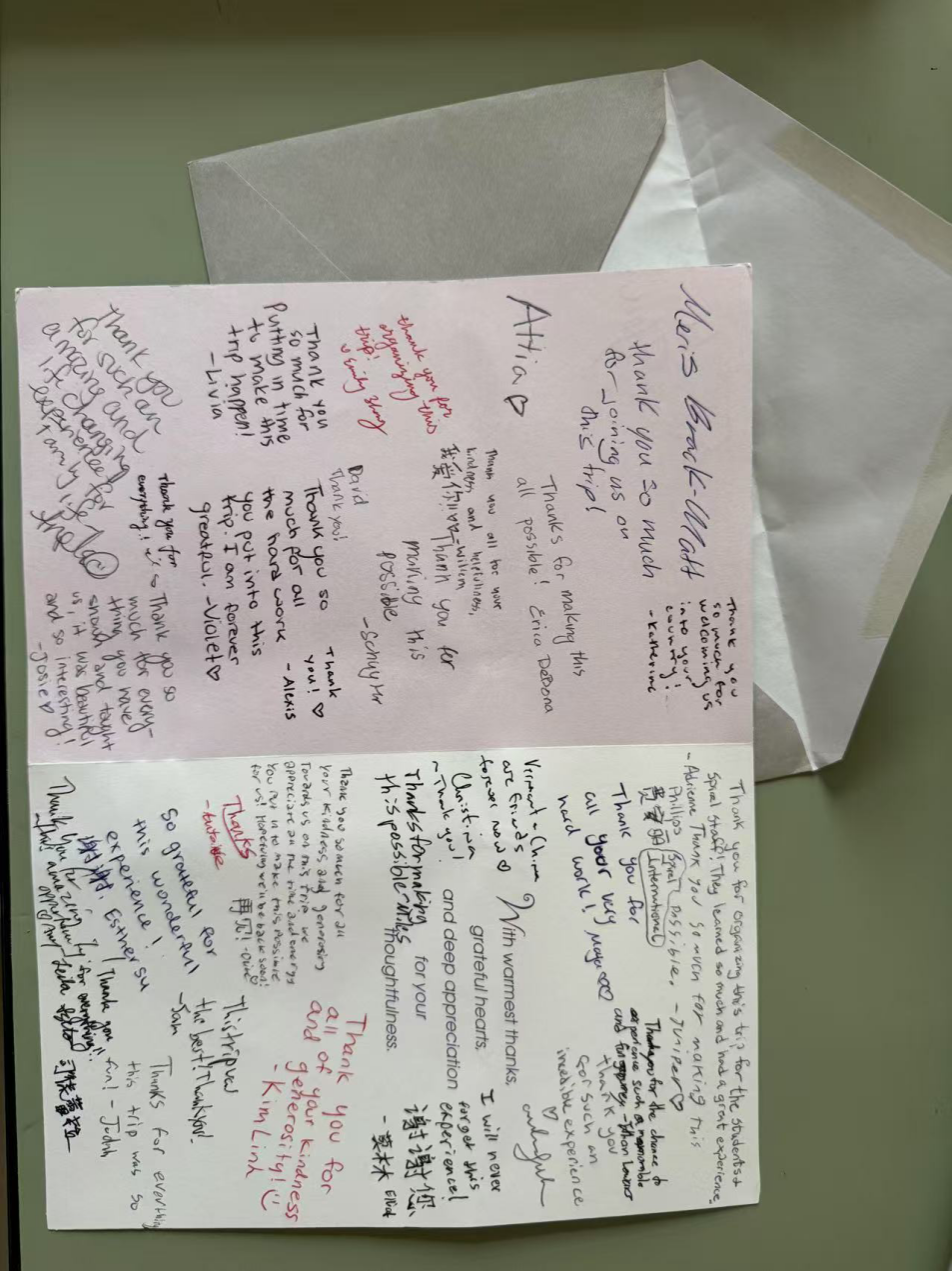 Meris Brack-Matt
thank you so much
for joining us on
this trip!
Thank you
so much for
welcoming us
into your
country!
- Katherine
Attia ♡
Thanks for making this
all possible! Erica DeBona
thank you for
organizing this
trip!
Thank you all for your
kindness and helpfulness,
我爱你们
Willem
Thank you for
making this
possible
- Schyler
David
Thank you!
Thank you
so much for
putting in time
to make this
trip happen!
- Livia
Thank you so
much for all
the hard work
you put into this
trip. I am forever
greatful. - Violet ♡
Thank
you! ♡
- Alexis
Thank you
for such an
amazing and
life changing
experience for
Thank you for
everything!!
Thank you so
much for every-
thing you have
should and taught
us, it was beautiful
and so interesting!
- Josie ♡
Thank you for organizing this trip for the students &
Spiral Staff! They learned so much and had a great experience.
- Adrienne
Phillips
Spiral
International
Thank you so much for making this
possible. - Juniper ♡
Thank you for
all your very
hard work!
Maya
Thank you for the chance to
experience such a memorable
Thank you
for such an
incredible experience
♡
Vermont & China
are friends
forever now ♡
Christina
- Thank you!
With warmest thanks,
grateful hearts,
and deep appreciation
for your
thoughtfulness.
Thanks for making
this possible - Miles
I will never
forget this
experience!
谢谢您
Thank you so much for all
your kindness and generosity
towards us on this trip. We
appreciate all the time and energy
you put in to make this possible
for us! Hopefully we'll be back soon!
再见!
Thanks
Thank you for
all of your kindness
and generosity!
- Kim Link
So grateful for
this wonderful
experience!
- Sam
This trip was
the best! Thank you!
谢谢! Esther Su
Thank you
for everything!!
Thanks for everything
this trip was so
fun! - Judah
Thank you for
this amazing
opportunity